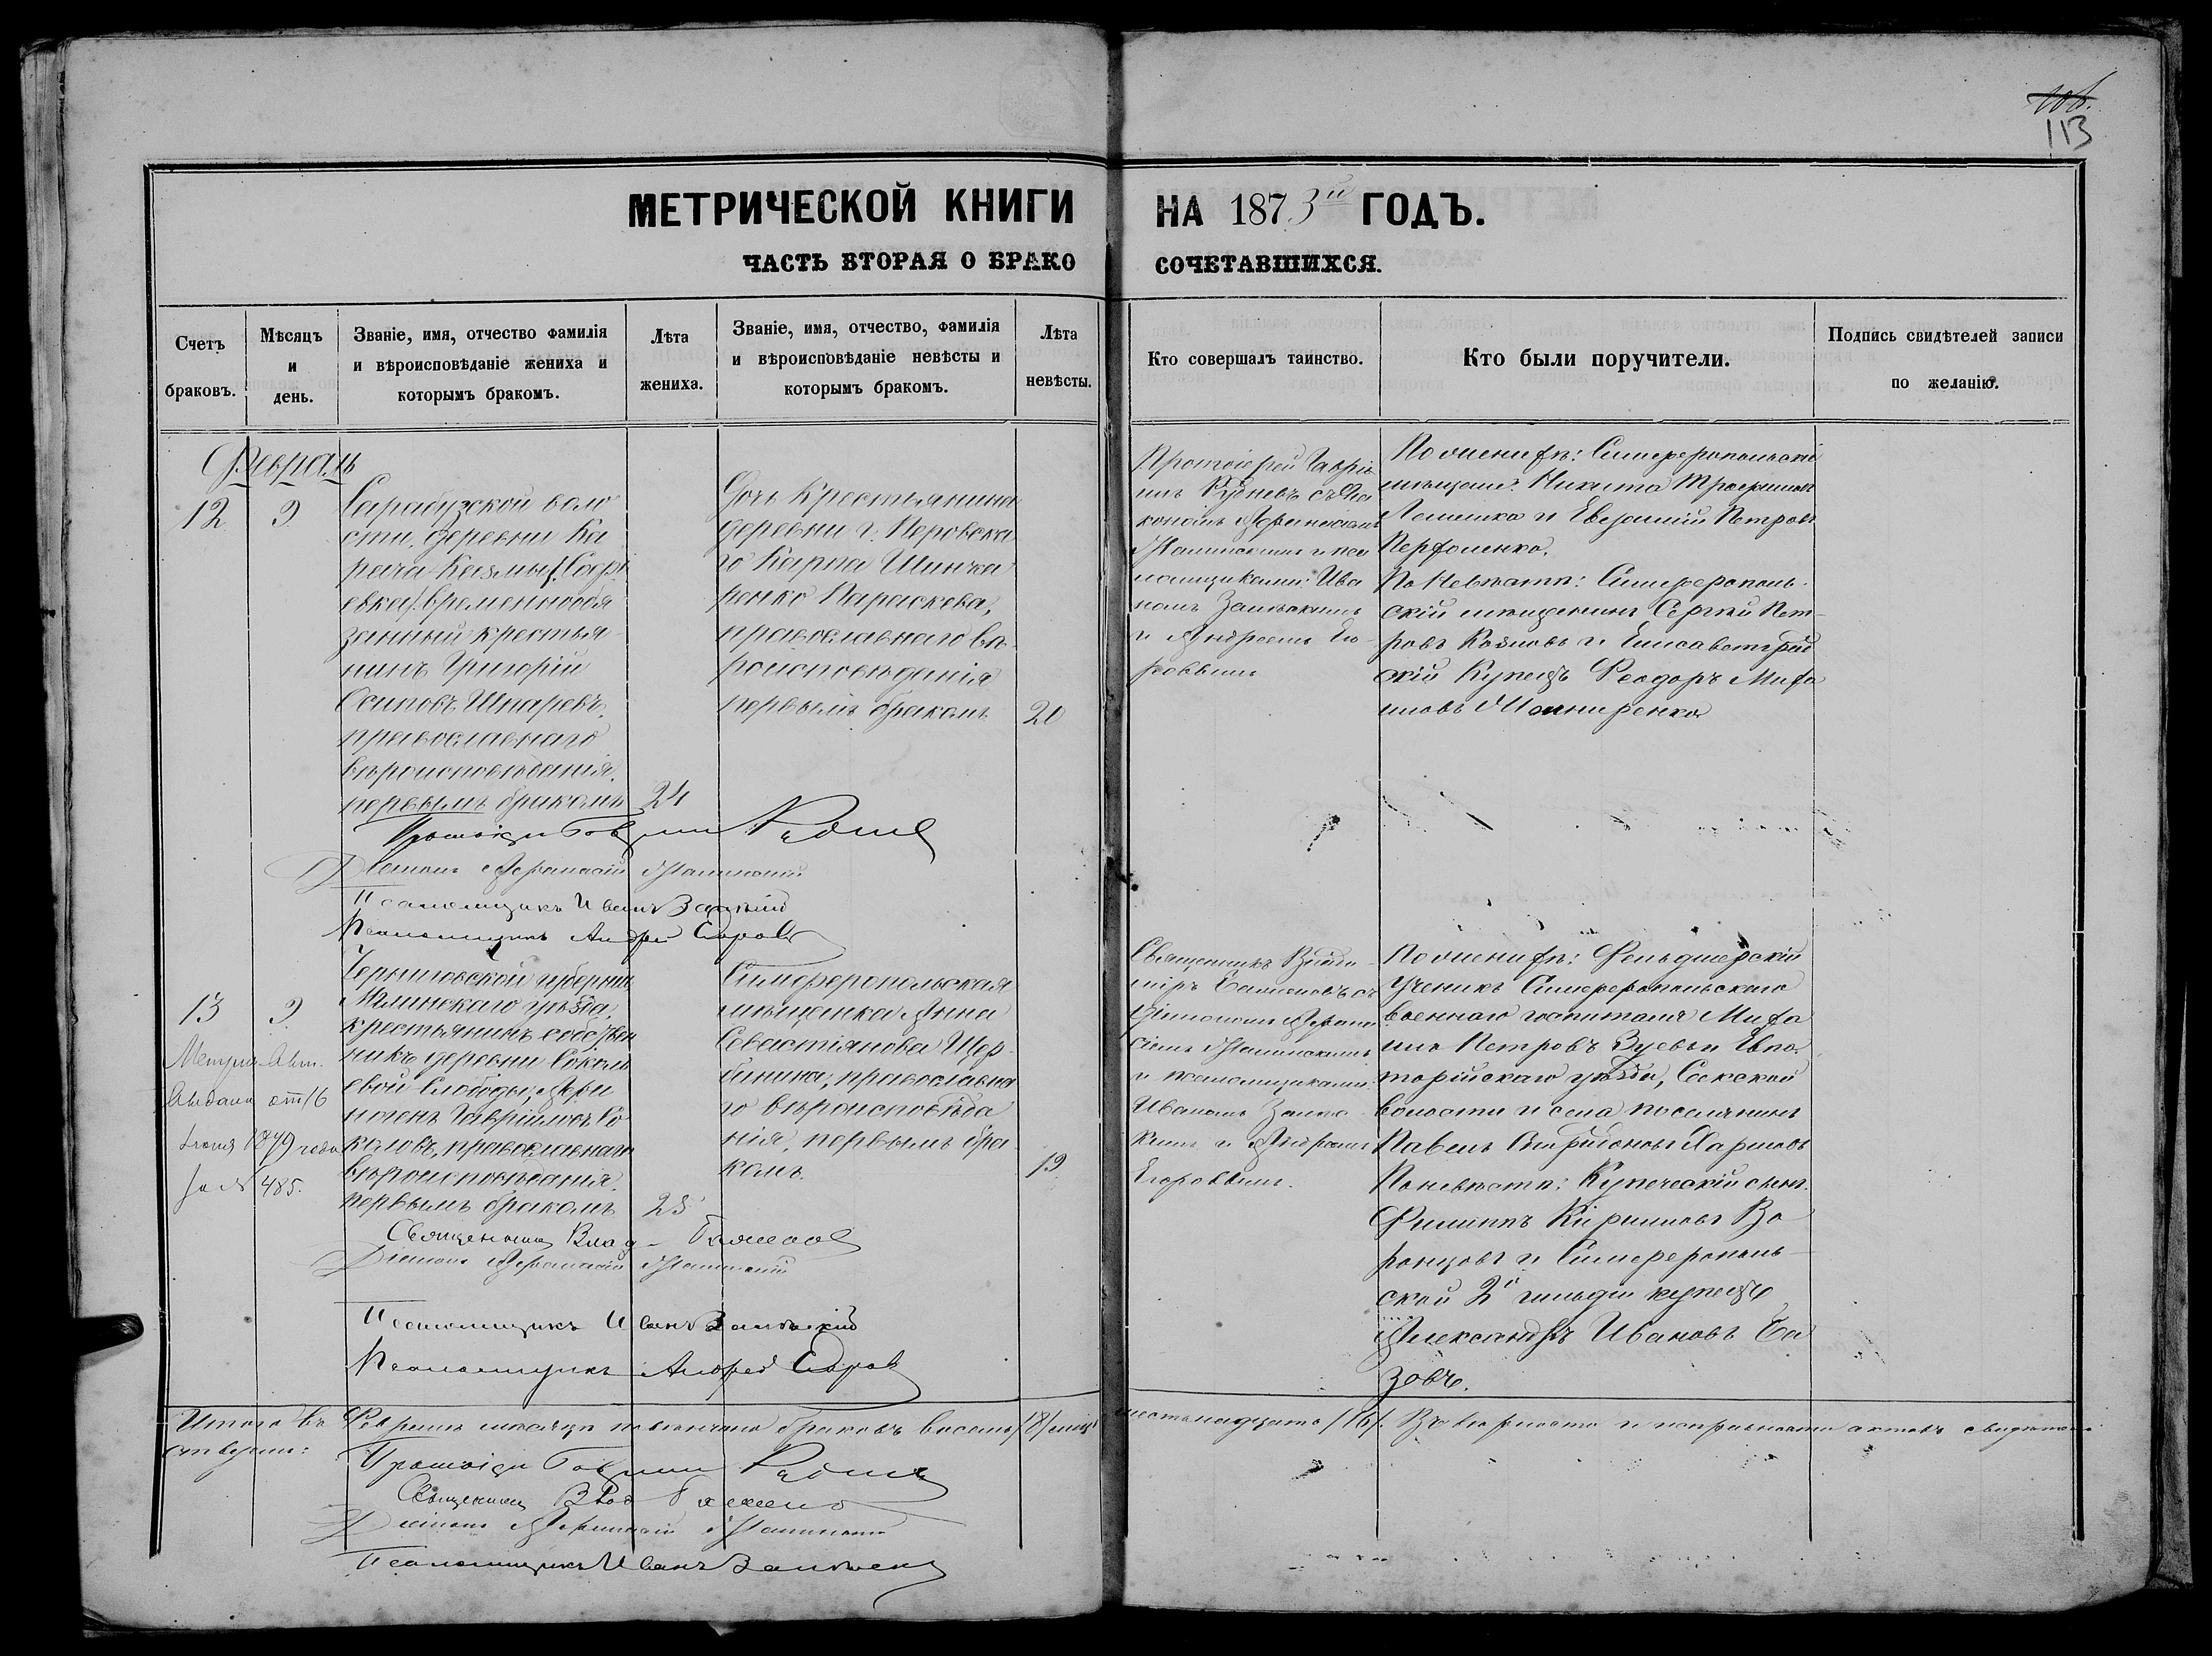 113
МЕТРИЧЕСКОЙ КНИГИ НА 1873й ГОДЪ.
ЧАСТЬ ВТОРАЯ О БРАКОСОЧЕТАВШИХСЯ.
Счетъ браковъ.
Мѣсяцъ и день.
Званіе, имя, отчество фамилія и вѣроисповѣданіе жениха и которымъ бракомъ.
Лѣта жениха.
Званіе, имя, отчество, фамилія и вѣроисповѣданіе невѣсты и которымъ бракомъ.
Лѣта невѣсты.
Кто совершалъ таинство.
Кто были поручители.
Подпись свидѣтелей записи по желанію.
Февраль
12
9
Сарабузской воло
сти, деревни Ка
рача Кеязмы (Соф
евка) временнообя
занный крестья
нинъ Григорій
Осиповъ Шпаревъ,
православнаго
вѣроисповѣданія,
первымъ бракомъ
24
Дочь крестьянина
деревни г. Перовска
го Карпа Шинка
ренко Параскева,
православнаго вѣ
роисповѣданія
первымъ бракомъ
20
Протоіерей Гаврі
илъ Рудневъ съ діа
кономъ Афанасіемъ
и пса
ломщиками: Ива
номъ
и Андреемъ Его
ровымъ
По женихѣ: Симферопольскіе
мѣщане: Никита Трофимовъ
Лешенко и Евфимій Петровъ
Перфоменко.
По невѣстѣ: Симферополь
скій мѣщанинъ Сергѣй Пет
ровъ Козловъ и Елисаветград
скій купецъ Феодоръ Миха
иловъ
Протоіерей Гавріилъ Рудневъ
Діаконъ Афанасій
Псаломщикъ Иванъ
Псаломщикъ Андрей Егоровъ
13
9
Метрич. Авт.
выдана от 16
Іюня 1879 года
за № 485.
Черниговской губерніи
Мглинскаго уѣзда,
крестьянинъ собствен
никъ деревни Соколь
евой Слободы,
Гавріиловъ Со
коловъ, православнаго
вѣроисповѣданія,
первымъ бракомъ
25
Симферопольская
мѣщанка Анна
Севастіянова Щер
бинина, православна
го вѣроисповѣда
нія, первымъ бра
комъ.
19
Священникъ Влади
міръ съ
діакономъ Афана
сіемъ
и псаломщиками:
Иваномъ
и Андреемъ
Егоровымъ.
По женихѣ: Фельдшерскій
ученикъ Симферопольскаго
военнаго госпиталя Миха
илъ Петровъ Зуевъ и Евпа
торійскаго уѣзда, Сакской
волости и села поселянинъ
Павелъ Спиридоновъ Харловъ
По невѣстѣ: Купеческій сынъ
Филиппъ Кирилловъ Во
ронцовъ и Симферополь
ской 2й гильдіи купецъ
Александръ Ивановъ Ба
зовъ.
Священникъ Влад.
Діаконъ Афанасій
Псаломщикъ Иванъ
Псаломщикъ Андрей Егоровъ
Итого въ Февралѣ мѣсяцѣ повѣнчано браковъ восемь (8) лицъ шестьнадцать (16). Въ вѣрности и исправности актовъ свидѣтель
ствуемъ:
Протоіерей Гавріилъ Рудневъ
Священникъ Влад.
Діаконъ Афанасій
Псаломщикъ Иванъ